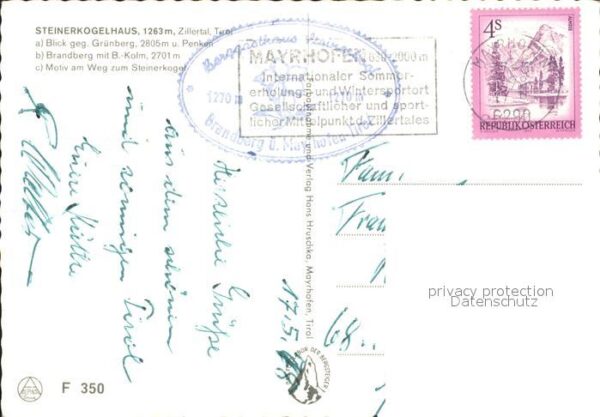 STEINERKOGELHAUS, 1263 m, Zillertal, Tirol
a) Blick geg. Grünberg, 2805 m u. Penken
b) Brandberg mit B.-Kolm, 2701 m
c) Motiv am Weg zum Steinerkogel
1270 m
1270 m
Brandberg ü. Mayrhofen Tirol
MAYRHOFEN 630-2000 m
Internationaler Sommer-
erholungs- und Wintersportort
Gesellschaftlicher und sport-
licher Mittelpunkt d. Zillertales
4S
REPUBLIK ÖSTERREICH
6290
Herzliche Grüße
aus dem schönen
und sonnigen Tirol
Eure Mutter
17.5.
Fam.
Fran
68
und Verlag Hans Hruschka, Mayrhofen, Tirol
privacy protection
Datenschutz
F 350